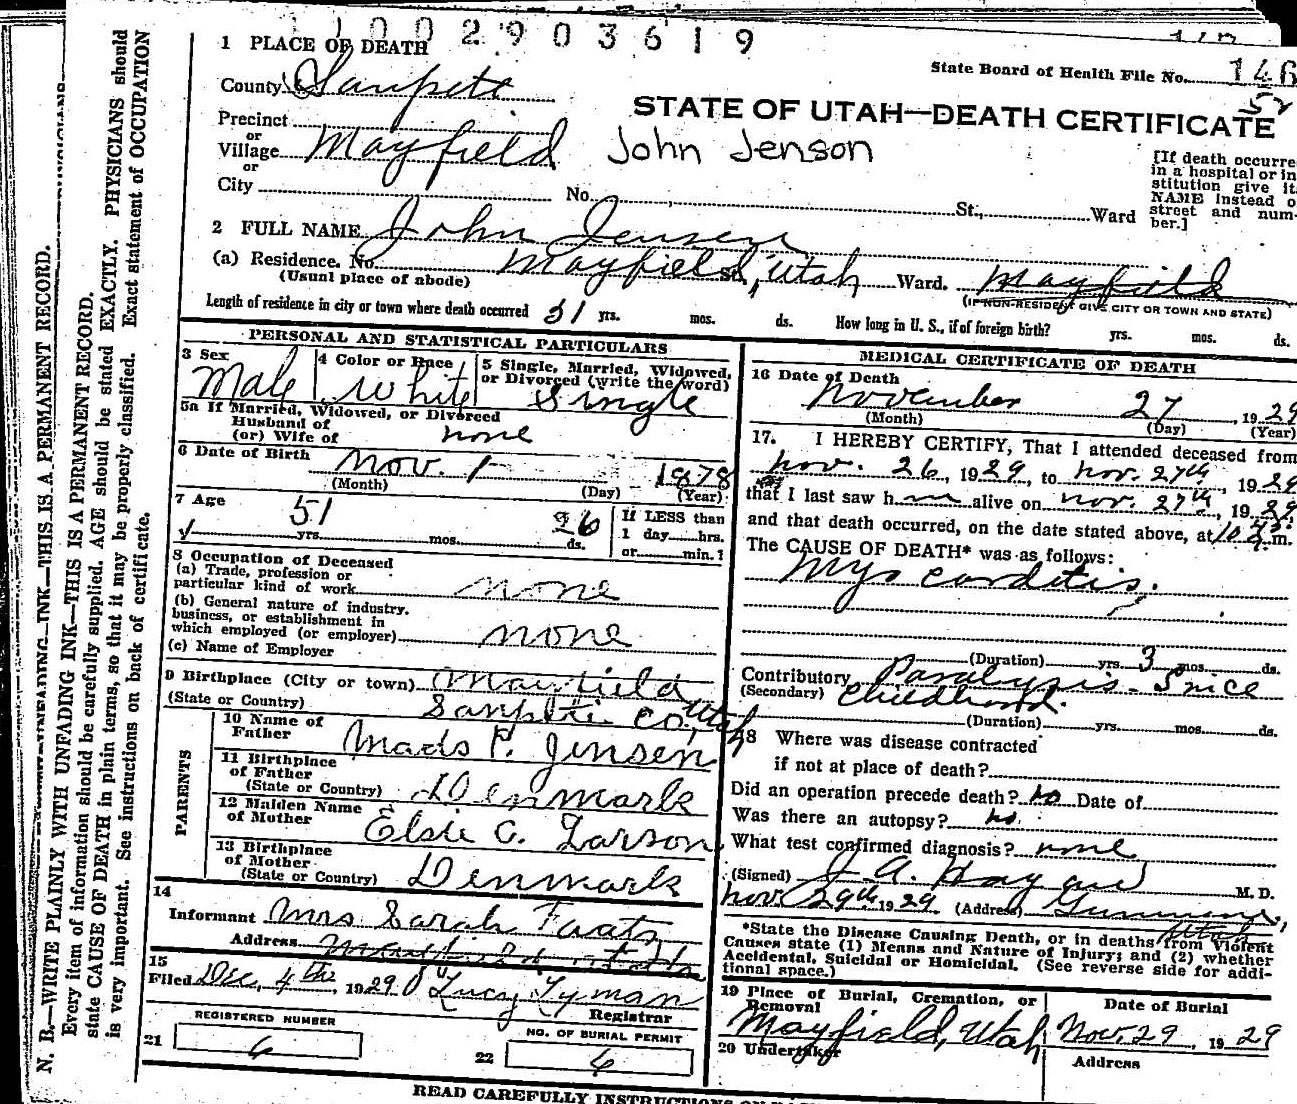 1 1 0 0 2 9 0 3 6 1 9
1 PLACE OF DEATH
State Board of Health File No. 146
52
County Sanpete
STATE OF UTAH—DEATH CERTIFICATE
Precinct
or
Village Mayfield John Jenson
or
City No. St., Ward
[If death occurre
in a hospital or in
stitution give it
NAME instead o
street and num-
ber.]
2 FULL NAME John Jensen
(a) Residence. No. Mayfield St., Utah Ward. Mayfield
(Usual place of abode) (IF NON-RESIDENT GIVE CITY OR TOWN AND STATE)
Length of residence in city or town where death occurred 51 yrs. mos. ds. How long in U. S., if of foreign birth? yrs. mos. ds.
PERSONAL AND STATISTICAL PARTICULARS
3 Sex Male
4 Color or Race White
5 Single, Married, Widowed,
or Divorced (write the word)
Single
5a If Married, Widowed, or Divorced
Husband of
(or) Wife of none
6 Date of Birth Nov. 1 - 1878
(Month) (Day) (Year)
7 Age 51 yrs. mos. 26 ds.
If LESS than
1 day hrs.
or min.?
8 Occupation of Deceased
(a) Trade, profession or
particular kind of work none
(b) General nature of industry,
business, or establishment in
which employed (or employer) none
(c) Name of Employer
9 Birthplace (City or town) Mayfield
(State or Country) Sanpete Co., Utah
PARENTS
10 Name of
Father Mads P. Jensen
11 Birthplace
of Father
(State or Country) Denmark
12 Maiden Name
of Mother Elsie C. Larson
13 Birthplace
of Mother
(State or Country) Denmark
14
Informant Mrs Sarah Faatz
Address Mayfield Utah
15
Filed Dec. 4th 1929 Lucy Lyman
Registrar
REGISTERED NUMBER
21 6
NO. OF BURIAL PERMIT
22 6
MEDICAL CERTIFICATE OF DEATH
16 Date of Death
November 27 1929
(Month) (Day) (Year)
17. I HEREBY CERTIFY, That I attended deceased from
Nov. 26, 1929, to Nov. 27th, 1929
that I last saw him alive on Nov. 27th, 1929
and that death occurred, on the date stated above, at 10 m.
The CAUSE OF DEATH* was as follows:
Myocarditis.
(Duration) yrs. 3 mos. ds.
Contributory Paralysis - Since
(Secondary) Childhood.
(Duration) yrs. mos. ds.
18 Where was disease contracted
if not at place of death?
Did an operation precede death? no Date of
Was there an autopsy? no.
What test confirmed diagnosis? none
(Signed) J. A. Hagan M. D.
Nov 29th 1929 (Address) Gunnison,
Utah
*State the Disease Causing Death, or in deaths from Violent
Causes state (1) Means and Nature of Injury; and (2) whether
Accidental, Suicidal or Homicidal. (See reverse side for addi-
tional space.)
19 Place of Burial, Cremation, or
Removal
Mayfield, Utah
Date of Burial
Nov. 29, 1929
20 Undertaker
Address
READ CAREFULLY INSTRUCTIONS ON
N. B.—WRITE PLAINLY WITH UNFADING INK—THIS IS A PERMANENT RECORD.
Every item of information should be carefully supplied. AGE should be stated EXACTLY. PHYSICIANS should
state CAUSE OF DEATH in plain terms, so that it may be properly classified. Exact statement of OCCUPATION
is very important. See instructions on back of certificate.